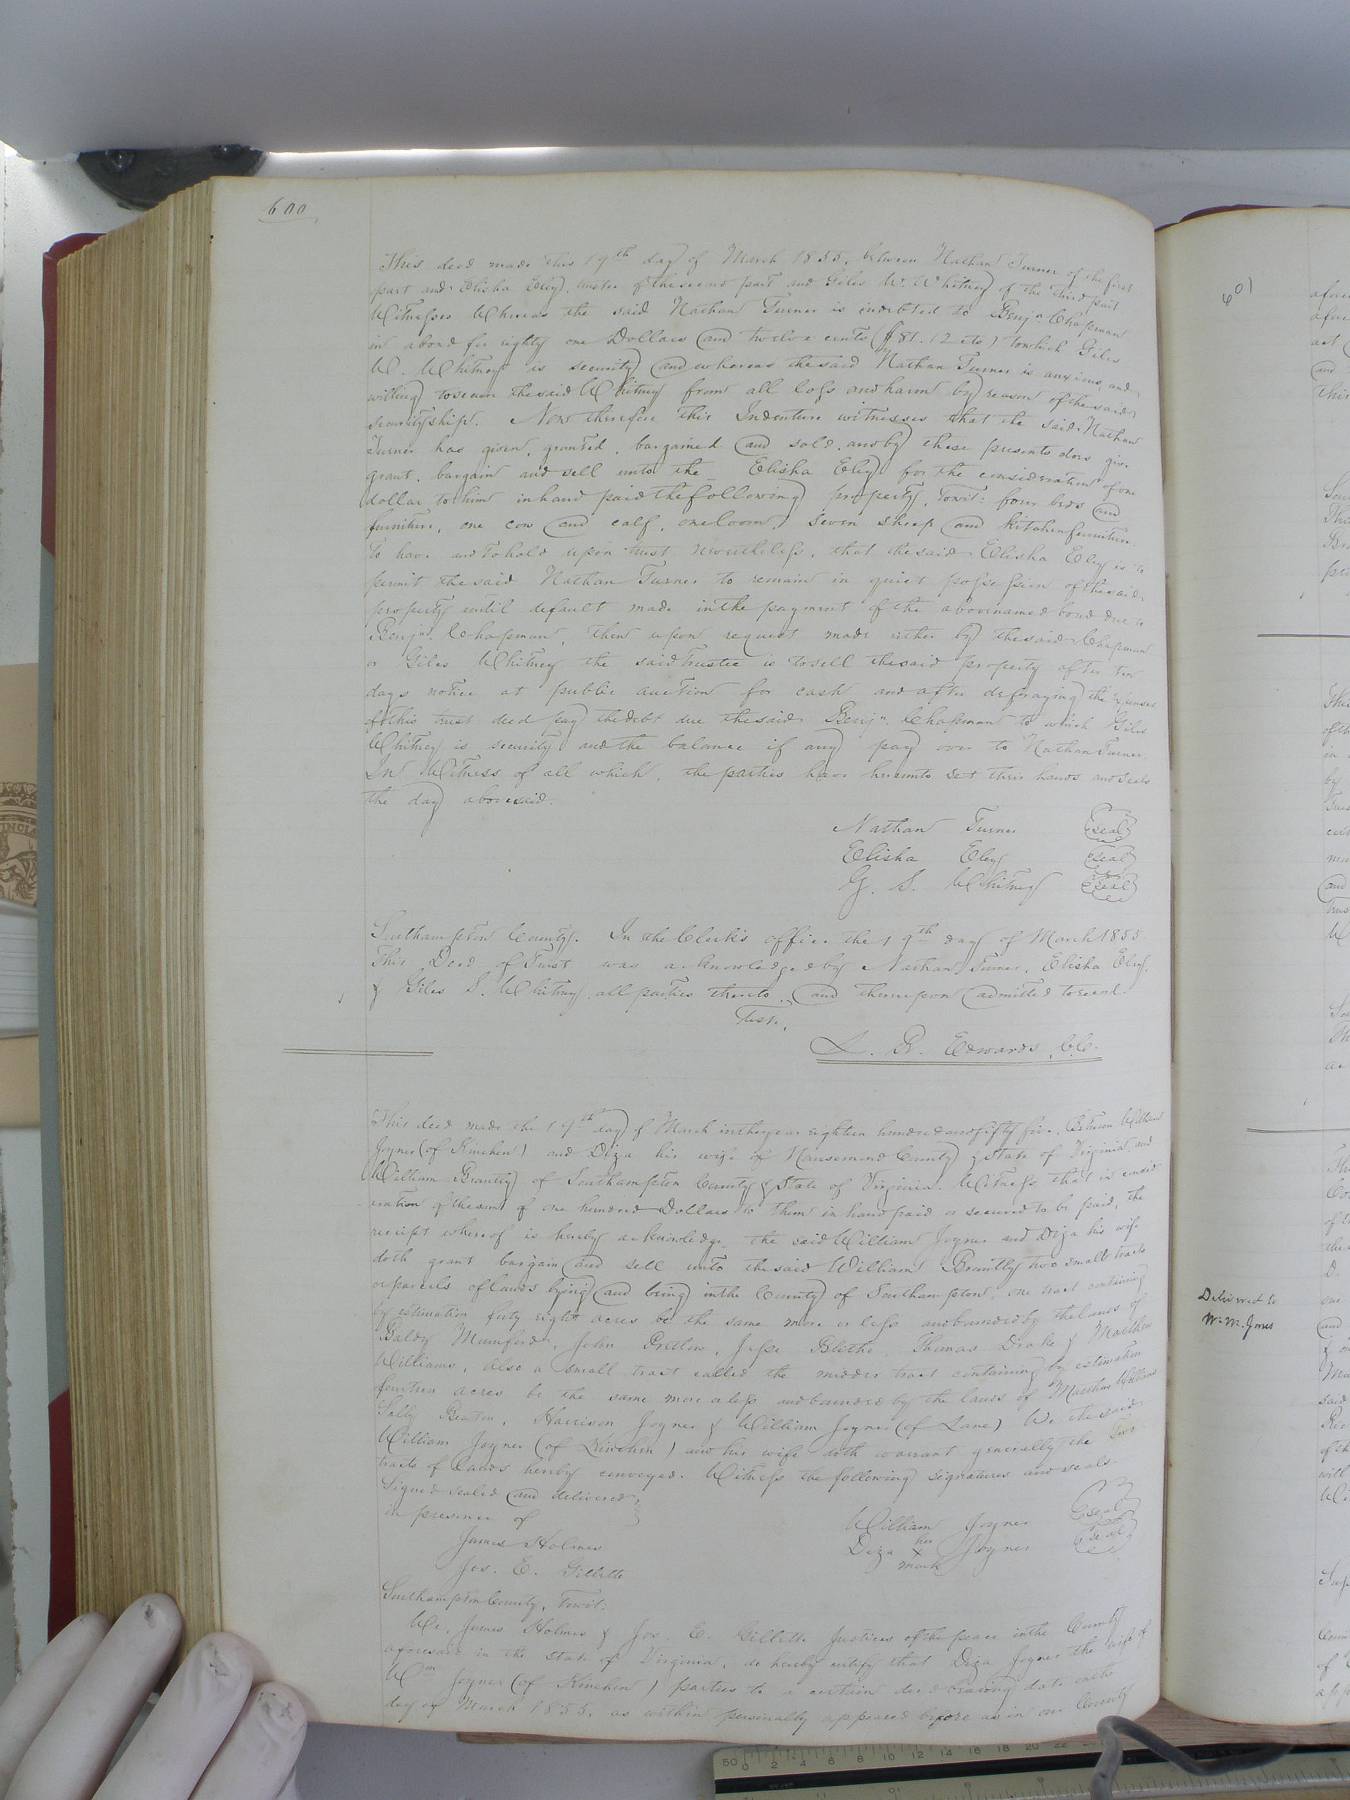 600
This deed made this 19th day of March 1855, between Nathan Turner of the first
part and Elisha Eley trustee of the second part and Giles W. Whitney of the third part
Witnesses Whereas the said Nathan Turner is indebted to Benjn Chapman
in a bond for eighty one Dollars and twelve cents ($81.12 cts) to which Giles
W. Whitney is security and whereas the said Nathan Turner is anxious and
willing to secure the said Whitney from all loss and harm by reason of the said
Securityship. Now therefore this Indenture witnesses that the said Nathan
Turner has given, granted, bargained and sold and by these presents does give
grant, bargain and sell unto the Elisha Eley for the consideration of one
dollar to him in hand paid the following property, Towit: four beds and
furniture, one cow and calf, one loom, seven sheep and kitchen furniture
To have and to hold upon trust nevertheless, that the said Elisha Eley is to
permit the said Nathan Turner to remain in quiet possession of the said
property until default made in the payment of the above named bond due to
Benjn. Chapman, then upon request made either by the said Chapman
or Giles Whitney the said Trustee is to sell the said property after ten
days notice at public auction for cash and after defraying the expenses
of this trust deed pay the debt due the said Benjn. Chapman to which Giles
Whitney is security and the balance if any pay over to Nathan Turner
In Witness of all which, the parties have hereunto set their hands and seals
the day abovesaid.
Nathan Turner seal
Elisha Eley seal
G. S. Whitney seal
Southampton County. In the Clerk's office the 19th day of March 1855
This Deed of Trust was acknowledged by Nathan Turner, Elisha Eley
& Giles S. Whitney all parties thereto, and thereupon admitted to record.
Test,
L. R. Edwards, C.C.
This deed made the 17th day of March in the year eighteen hundred and fifty five, Between William
Joyner (of Kinchen) and Diza his wife of Nansemond County & State of Virginia and
William Brantly of Southampton County & State of Virginia. Witness that in consid
eration of the sum of one hundred Dollars to them in hand paid or secured to be paid, the
receipt whereof is hereby acknowledge the said William Joyner and Diza his wife
doth grant bargain and sell unto the said William Brantly two small tracts
or parcels of lands lying and being in the County of Southampton, one tract containing
by estimation forty eight acres be the same more or less and bounded by the lands of
Baldy Mumford, John Pretlow, Jesse Blythe, Thomas Drake & Matthew
Williams, also a small tract called the middle tract containing by estimation
fourteen acres be the same more or less and bounded by the lands of Matthew Williams
Sally Beaton, Harrison Joyner & William Joyner (of Lane) We the said
William Joyner (of Kinchen) and his wife doth warrant generally the two
tracts of lands hereby conveyed. Witness the following signatures and seals
Signed sealed and delivered
in presence of
William Joyner seal
Diza her X mark Joyner seal
James Holmes
Jos. E. Gillette
Southampton County, Towit:
We, James Holmes & Jos. E. Gillette Justices of the peace in the County
aforesaid in the State of Virginia, do hereby certify that Diza Joyner the wife of
Wm Joyner (of Kinchen) parties to a certain deed bearing date on the
day of March 1855, as within personally appeared before us in our County
601
Delivered to
W. M. Jones